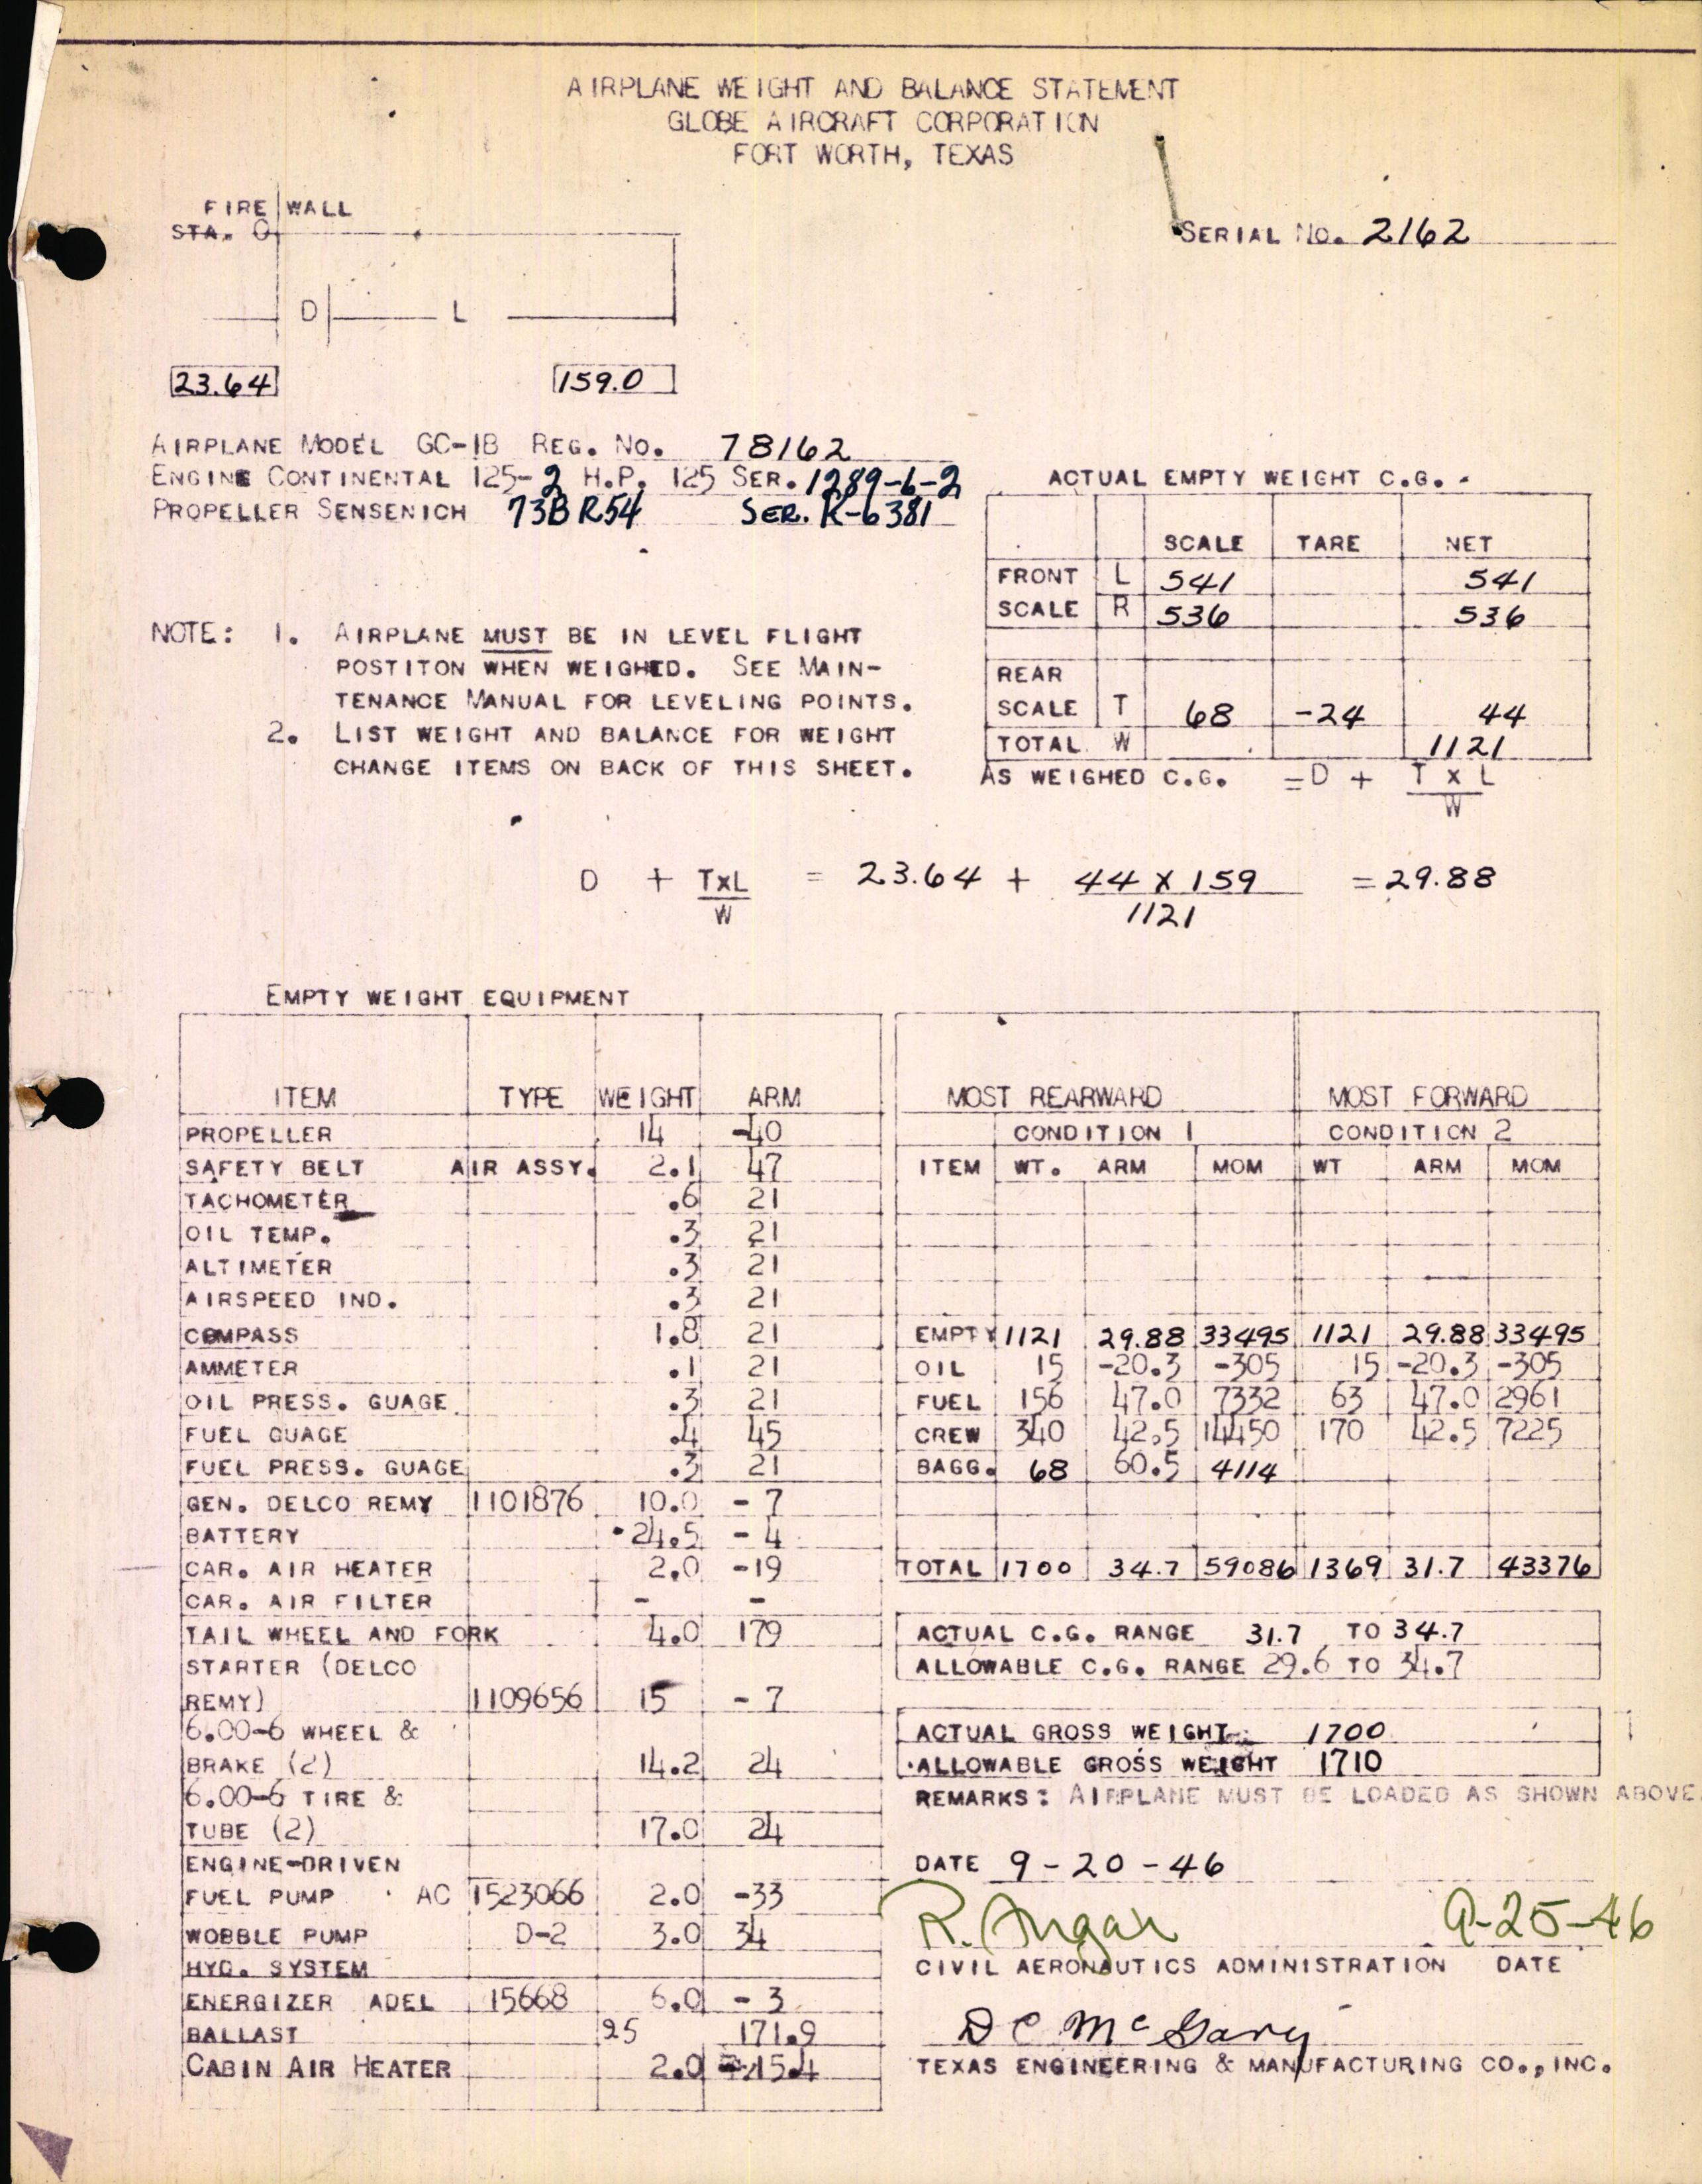 AIRPLANE WEIGHT AND BALANCE STATEMENT
GLOBE AIRCRAFT CORPORATION
FORT WORTH, TEXAS
FIRE WALL
STA. 0
SERIAL NO. 2162
D L
23.64 159.0
AIRPLANE MODEL GC-1B REG. NO. 78162
ENGINE CONTINENTAL 125-2 H.P. 125 SER. 1289-6-2
PROPELLER SENSENICH 73BR54 SER. K-6381
ACTUAL EMPTY WEIGHT C.G.
SCALE TARE NET
FRONT L 541 541
SCALE R 536 536
REAR
SCALE T 68 -24 44
TOTAL W 1121
AS WEIGHED C.G. = D + T X L
W
NOTE: 1. AIRPLANE MUST BE IN LEVEL FLIGHT
POSTITON WHEN WEIGHED. SEE MAIN-
TENANCE MANUAL FOR LEVELING POINTS.
2. LIST WEIGHT AND BALANCE FOR WEIGHT
CHANGE ITEMS ON BACK OF THIS SHEET.
D + TXL = 23.64 + 44 X 159 = 29.88
W 1121
EMPTY WEIGHT EQUIPMENT
ITEM TYPE WEIGHT ARM
PROPELLER 14 -40
SAFETY BELT AIR ASSY. 2.1 47
TACHOMETER .6 21
OIL TEMP. .3 21
ALTIMETER .3 21
AIRSPEED IND. .3 21
COMPASS 1.8 21
AMMETER .1 21
OIL PRESS. GUAGE .3 21
FUEL GUAGE .4 45
FUEL PRESS. GUAGE .3 21
GEN. DELCO REMY 1101876 10.0 - 7
BATTERY 24.5 - 4
CAR. AIR HEATER 2.0 -19
CAR. AIR FILTER - -
TAIL WHEEL AND FORK 4.0 179
STARTER (DELCO
REMY) 1109656 15 - 7
6.00-6 WHEEL &
BRAKE (2) 14.2 24
6.00-6 TIRE &
TUBE (2) 17.0 24
ENGINE-DRIVEN
FUEL PUMP AC 1523066 2.0 -33
WOBBLE PUMP D-2 3.0 34
HYD. SYSTEM
ENERGIZER ADEL 15668 6.0 - 3
BALLAST 25 171.9
CABIN AIR HEATER 2.0 -15.4
MOST REARWARD MOST FORWARD
CONDITION 1 CONDITION 2
ITEM WT. ARM MOM WT ARM MOM
EMPTY 1121 29.88 33495 1121 29.88 33495
OIL 15 -20.3 -305 15 -20.3 -305
FUEL 156 47.0 7332 63 47.0 2961
CREW 340 42.5 14450 170 42.5 7225
BAGG. 68 60.5 4114
TOTAL 1700 34.7 59086 1369 31.7 43376
ACTUAL C.G. RANGE 31.7 TO 34.7
ALLOWABLE C.G. RANGE 29.6 TO 34.7
ACTUAL GROSS WEIGHT 1700
ALLOWABLE GROSS WEIGHT 1710
REMARKS: AIRPLANE MUST BE LOADED AS SHOWN ABOVE.
DATE 9-20-46
R. 9-25-46
CIVIL AERONAUTICS ADMINISTRATION DATE
D C McGary
TEXAS ENGINEERING & MANUFACTURING CO., INC.